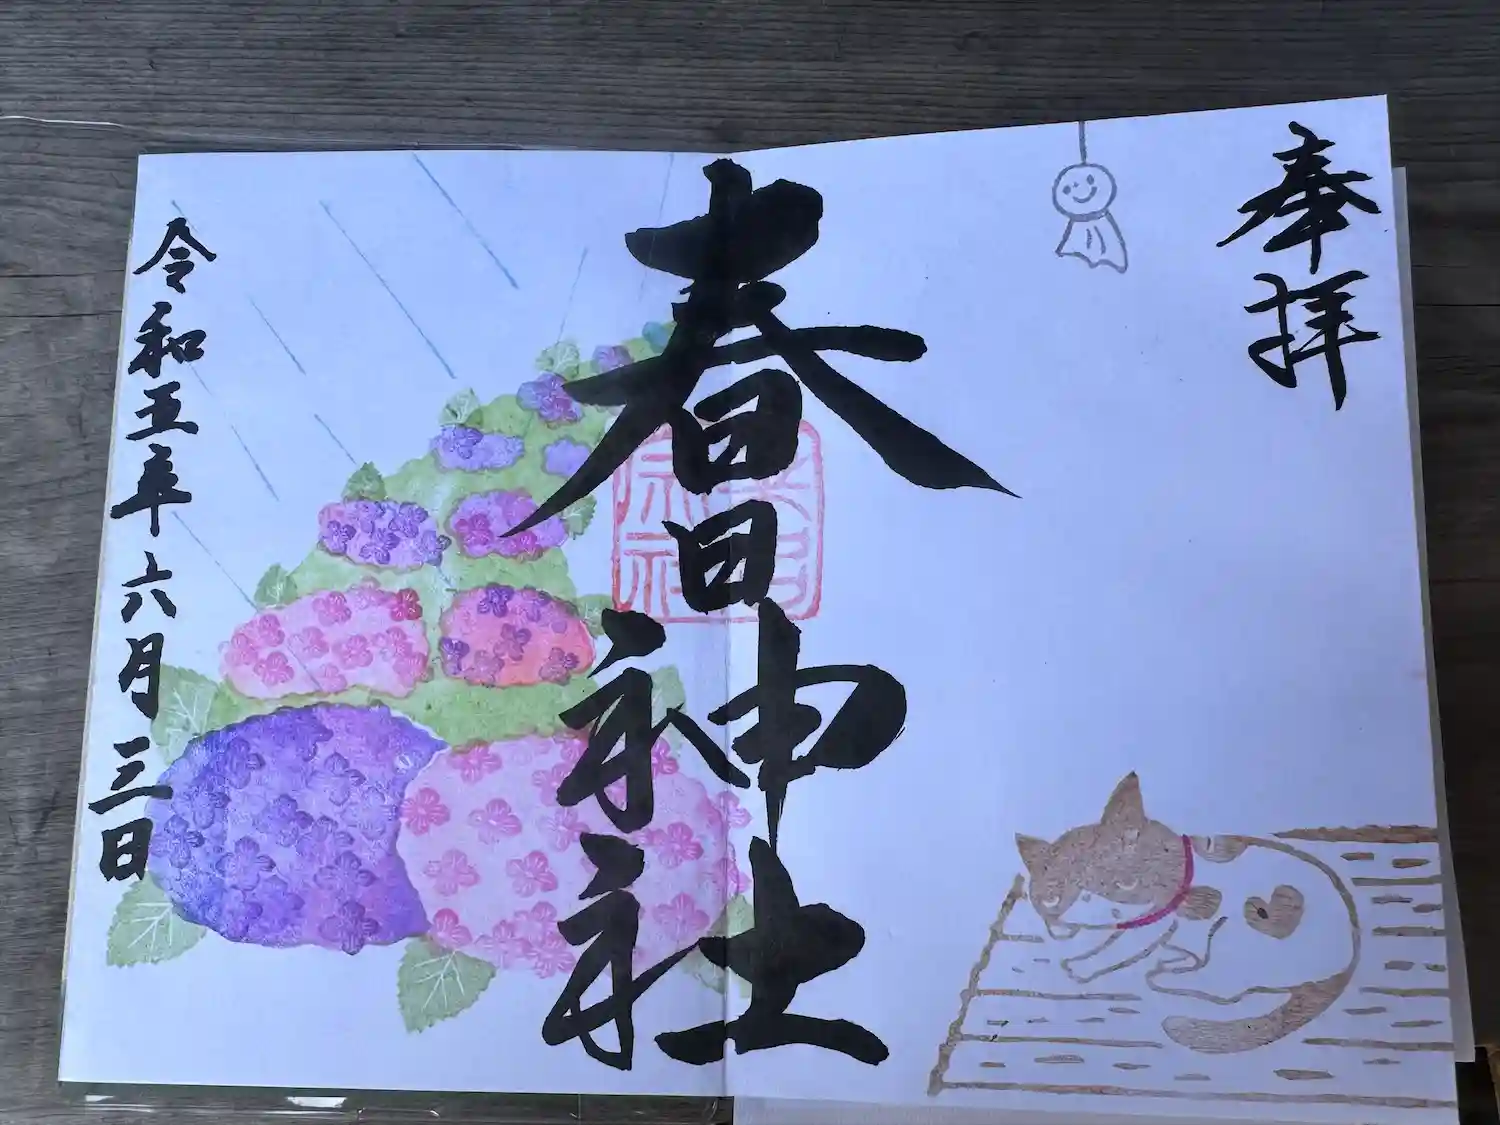 奉拝
春日神社
令和五年六月三日